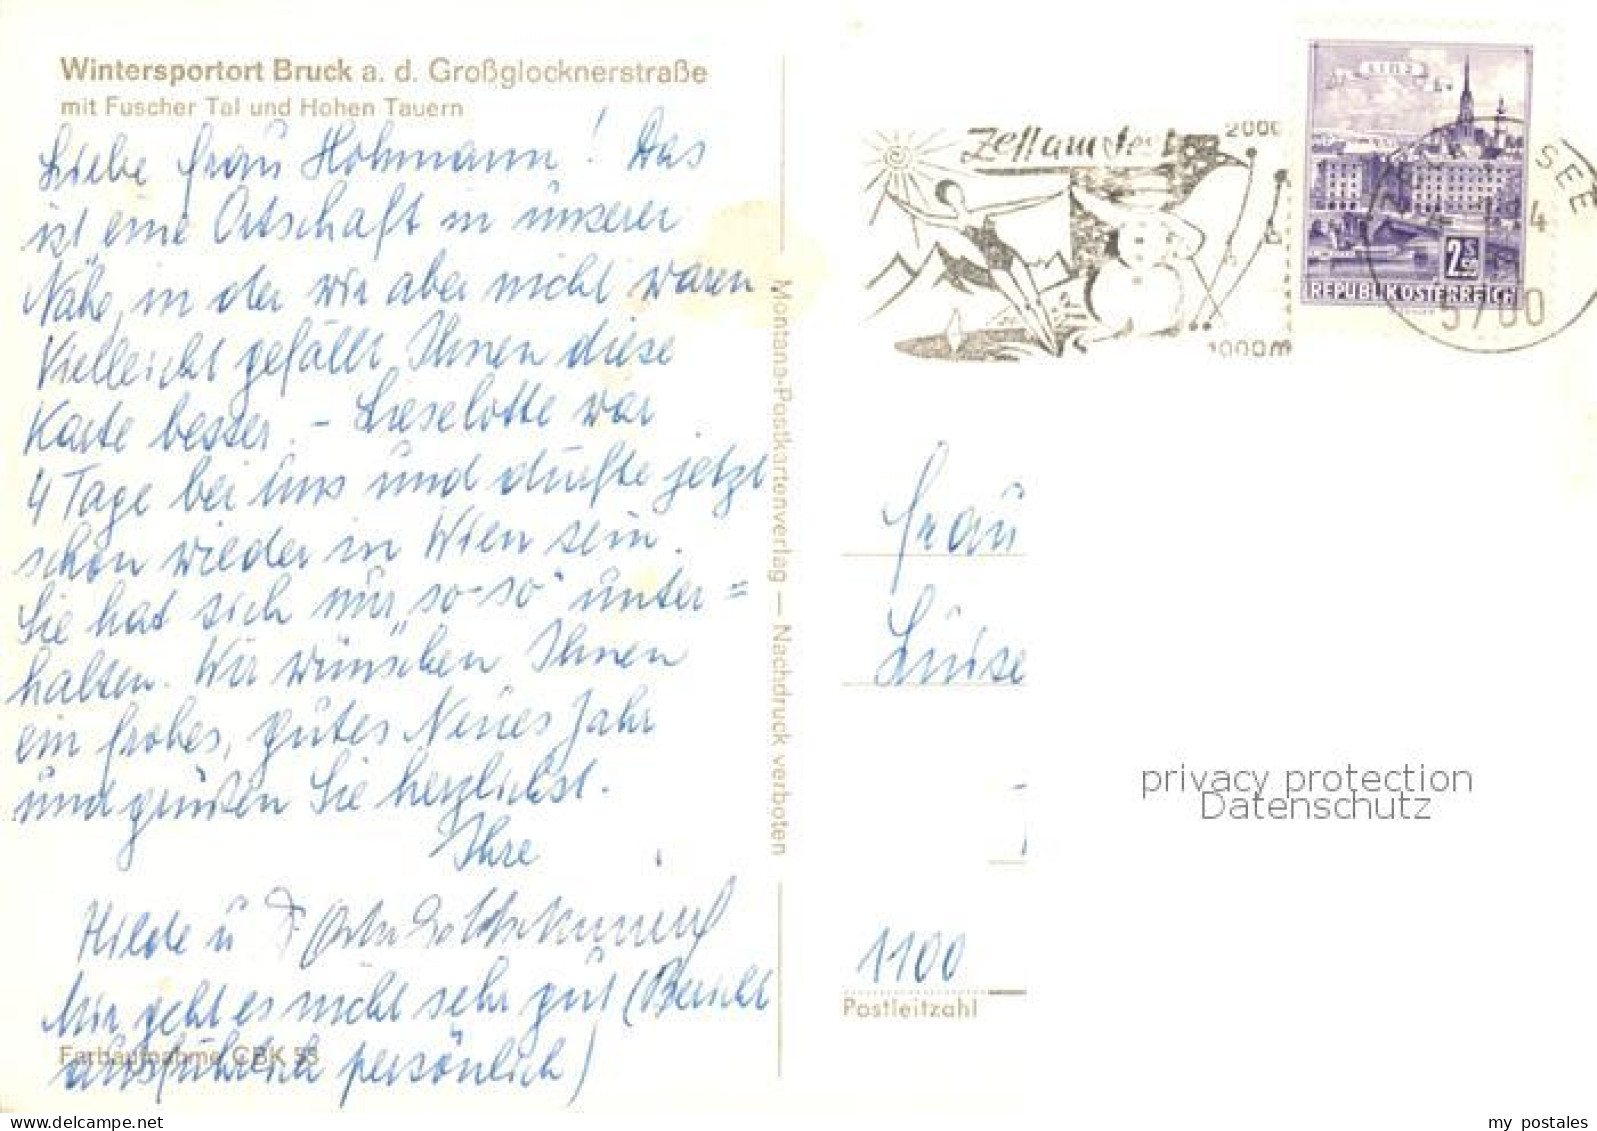 Wintersportort Bruck a. d. Großglocknerstraße
mit Fuscher Tal und Hohen Tauern
Liebe Frau Hohmann! Das
ist eine Ortschaft in unserer
Nähe, in der wir aber nicht waren
Vielleicht gefällt Ihnen diese
Karte besser. - Lieselotte war
4 Tage bei uns und dürfte jetzt
schon wieder in Wien sein.
Sie hat sich nur „so-so“ unter=
halten. Wir wünschen Ihnen
ein frohes, gutes Neues Jahr
und grüßen Sie herzlichst.
Ihre
Hilde u
Mir geht es nicht sehr gut (Bericht
ausführlich persönlich)
Farbaufnahme CBK 53
Montana-Postkartenverlag — Nachdruck verboten
Zell am See
2000
1000m
LINZ
2S50
REPUBLIK ÖSTERREICH
SEE
5700
Frau
Luise
1100
Postleitzahl
privacy protection
Datenschutz
my postales